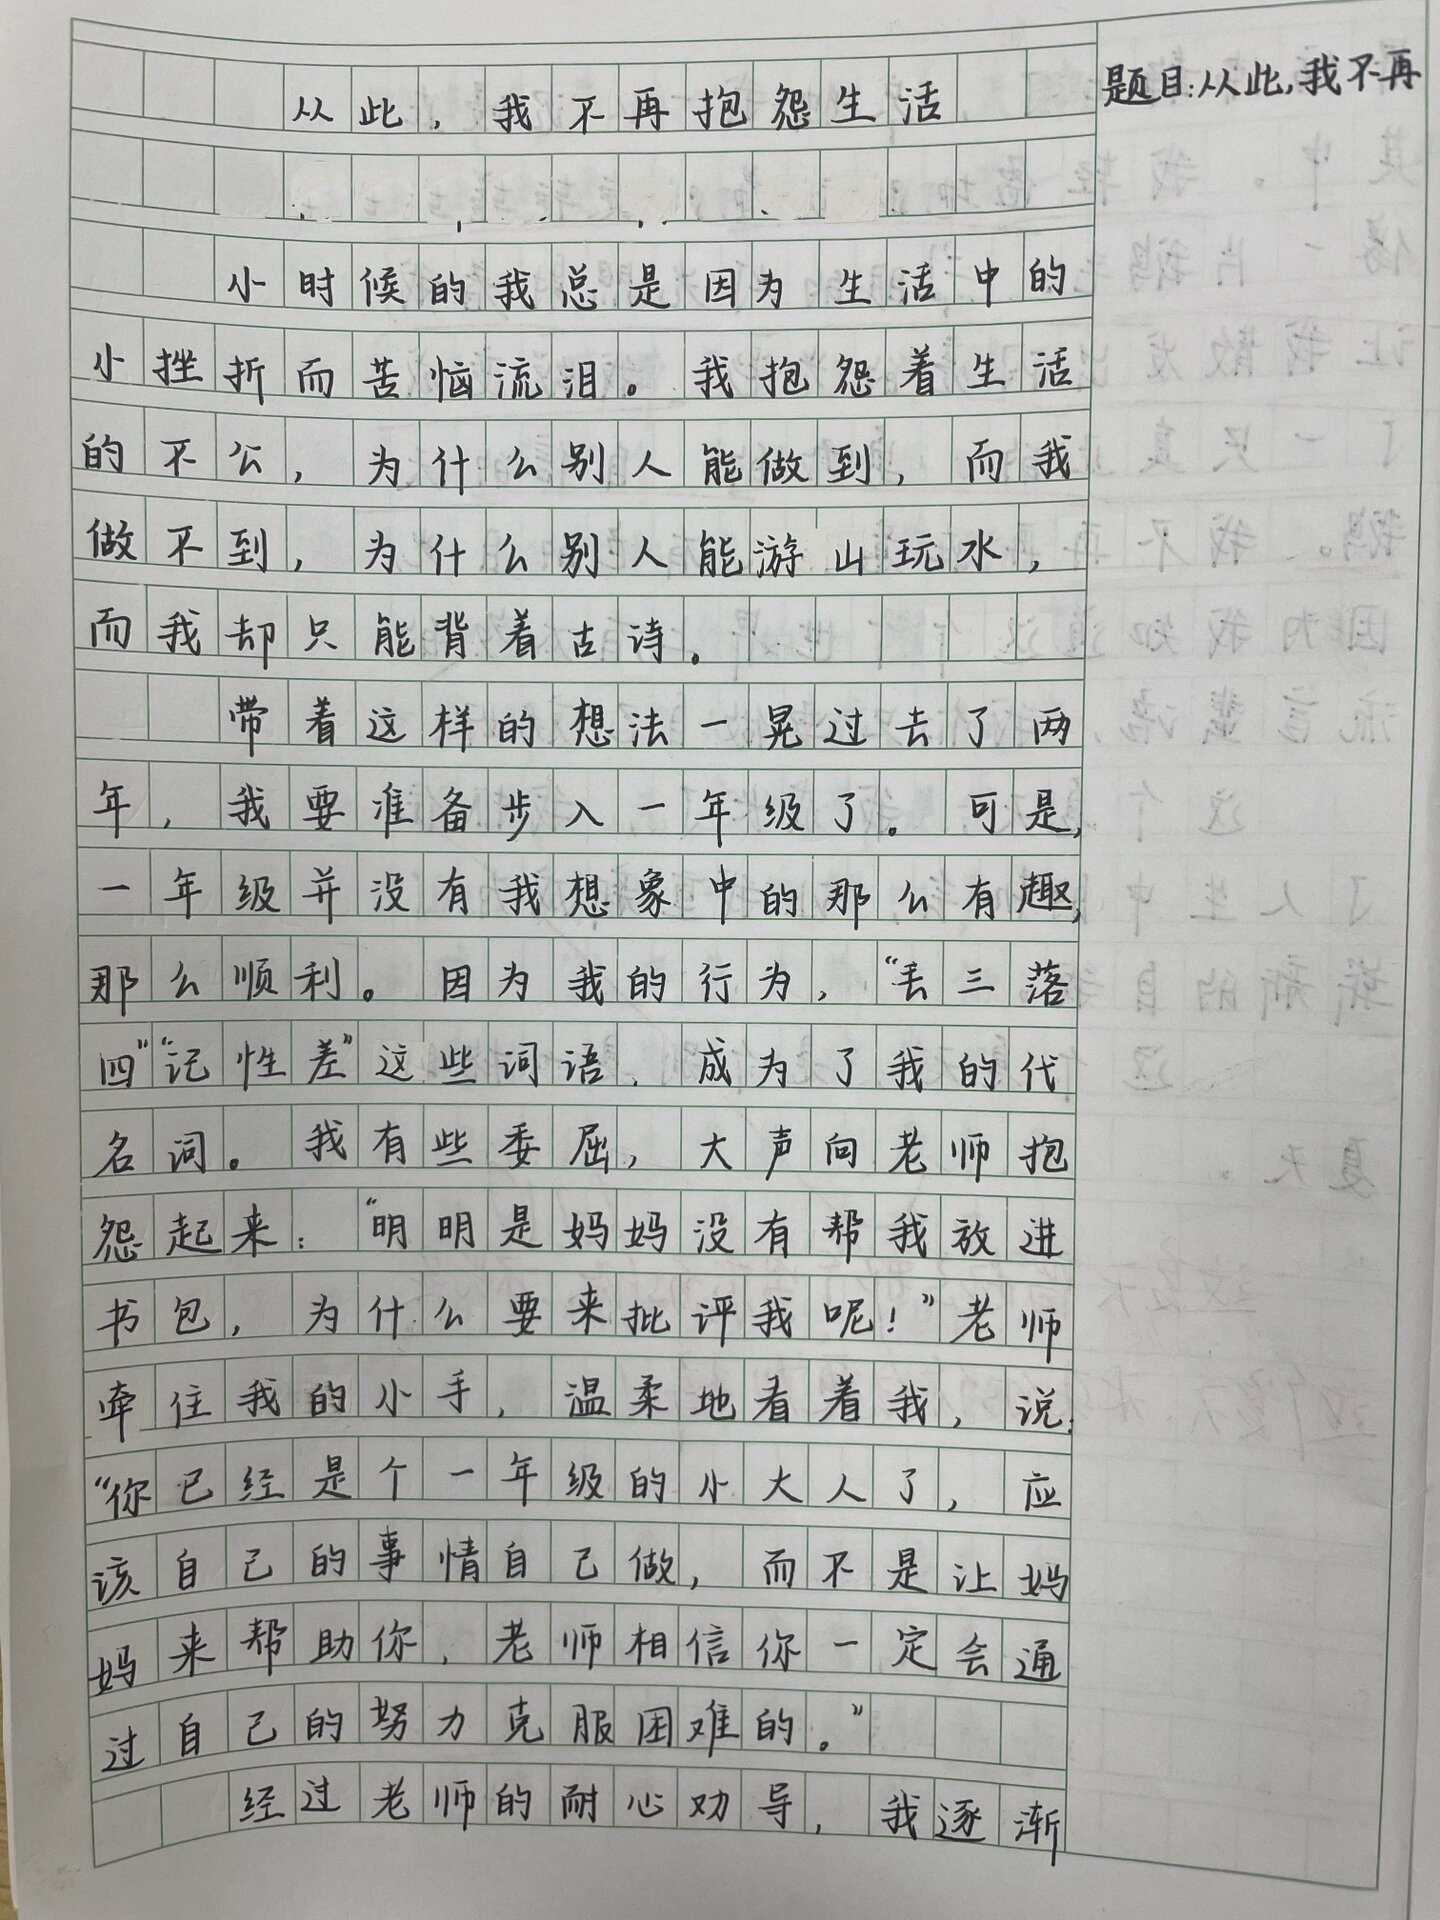 题目:从此,我不再
从此,我不再抱怨生活
小时候的我总是因为生活中的
小挫折而苦恼流泪。我抱怨着生活
的不公,为什么别人能做到,而我
做不到,为什么别人能游山玩水,
而我却只能背着古诗。
带着这样的想法一晃过去了两
年,我要准备步入一年级了。可是,
一年级并没有我想象中的那么有趣,
那么顺利。因为我的行为,“丢三落
四”“记性差”这些词语,成为了我的代
名词。我有些委屈,大声向老师抱
怨起来:“明明是妈妈没有帮我放进
书包,为什么要来批评我呢!”老师
牵住我的小手,温柔地看着我,说:
“你已经是个一年级的小大人了,应
该自己的事情自己做,而不是让妈
妈来帮助你,老师相信你一定会通
过自己的努力克服困难的。”
经过老师的耐心劝导,我逐渐